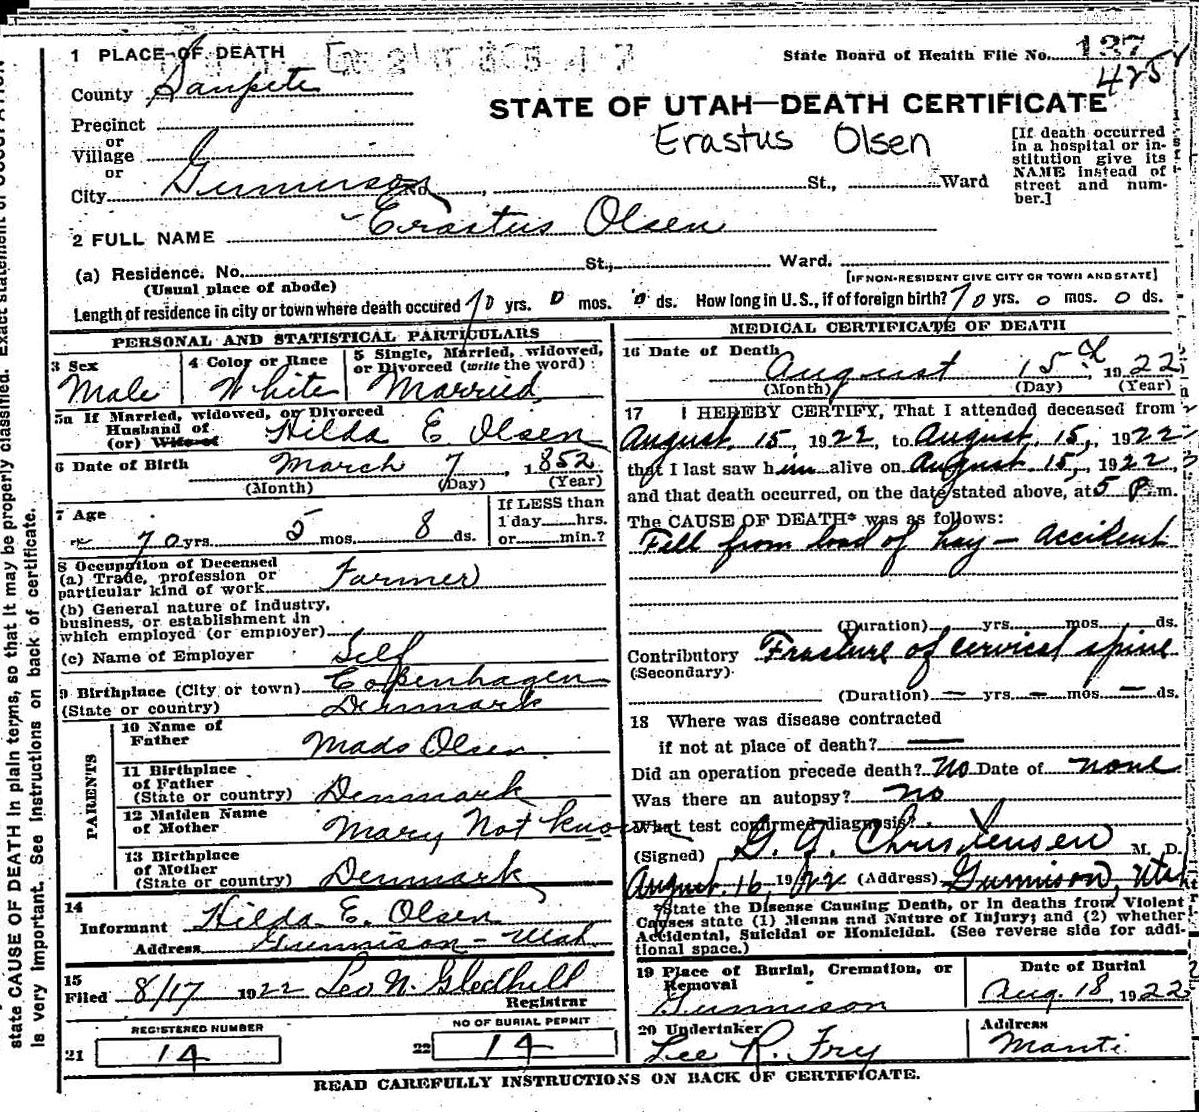 1 PLACE OF DEATH
State Board of Health File No. 137
425
County Sanpete
STATE OF UTAH—DEATH CERTIFICATE
Erastus Olsen
Precinct
or
Village
or
City Gunnison No. , St., Ward
[If death occurred
in a hospital or in-
stitution give its
NAME instead of
street and num-
ber.]
2 FULL NAME Erastus Olsen
(a) Residence. No. St., Ward.
(Usual place of abode)
[IF NON-RESIDENT GIVE CITY OR TOWN AND STATE]
Length of residence in city or town where death occured 70 yrs. 0 mos. 0 ds. How long in U.S., if of foreign birth? 70 yrs. 0 mos. 0 ds.
PERSONAL AND STATISTICAL PARTICULARS
3 Sex
Male
4 Color or Race
White
5 Single, Married, widowed,
or Divorced (write the word)
Married
5a If Married, widowed, or Divorced
Husband of
(or) Wife of
Hilda E. Olsen
6 Date of Birth March 7, 1852
(Month) (Day) (Year)
7 Age
70 yrs. 5 mos. 8 ds.
If LESS than
1 day hrs.
or min.?
8 Occupation of Deceased
(a) Trade, profession or
particular kind of work Farmer
(b) General nature of industry,
business, or establishment in
which employed (or employer)
(c) Name of Employer Self
9 Birthplace (City or town) Copenhagen
(State or country) Denmark
PARENTS
10 Name of
Father Mads Olsen
11 Birthplace
of Father
(State or country) Denmark
12 Maiden Name
of Mother Mary Not known
13 Birthplace
of Mother
(State or country) Denmark
14
Informant Hilda E. Olsen
Address Gunnison - Utah
15
Filed 8/17 1922 Leo N. Gledhill
Registrar
REGISTERED NUMBER
21 14
NO OF BURIAL PERMIT
22 14
MEDICAL CERTIFICATE OF DEATH
16 Date of Death
August 15th, 1922
(Month) (Day) (Year)
17 I HEREBY CERTIFY, That I attended deceased from
August 15, 1922, to August 15, 1922
that I last saw him alive on August 15, 1922
and that death occurred, on the date stated above, at 5 P. m.
The CAUSE OF DEATH* was as follows:
Fell from load of hay — accident
(Duration) yrs. mos. ds.
Contributory Fracture of cervical spine
(Secondary)
(Duration) — yrs. — mos. — ds.
18 Where was disease contracted
if not at place of death? —
Did an operation precede death? No Date of none
Was there an autopsy? no
What test confirmed diagnosis?
(Signed) Christensen M. D.
August 16, 1922 (Address) Gunnison, Utah
*State the Disease Causing Death, or in deaths from Violent
Causes state (1) Means and Nature of Injury; and (2) whether
Accidental, Suicidal or Homicidal. (See reverse side for addi-
tional space.)
19 Place of Burial, Cremation, or
Removal
Gunnison
Date of Burial
Aug. 18, 1922
20 Undertaker
Lee R. Fry
Address
Manti
READ CAREFULLY INSTRUCTIONS ON BACK OF CERTIFICATE.
state CAUSE OF DEATH in plain terms, so that it may be properly classified. Exact statement of OCCUPATION
is very important. See instructions on back of certificate.